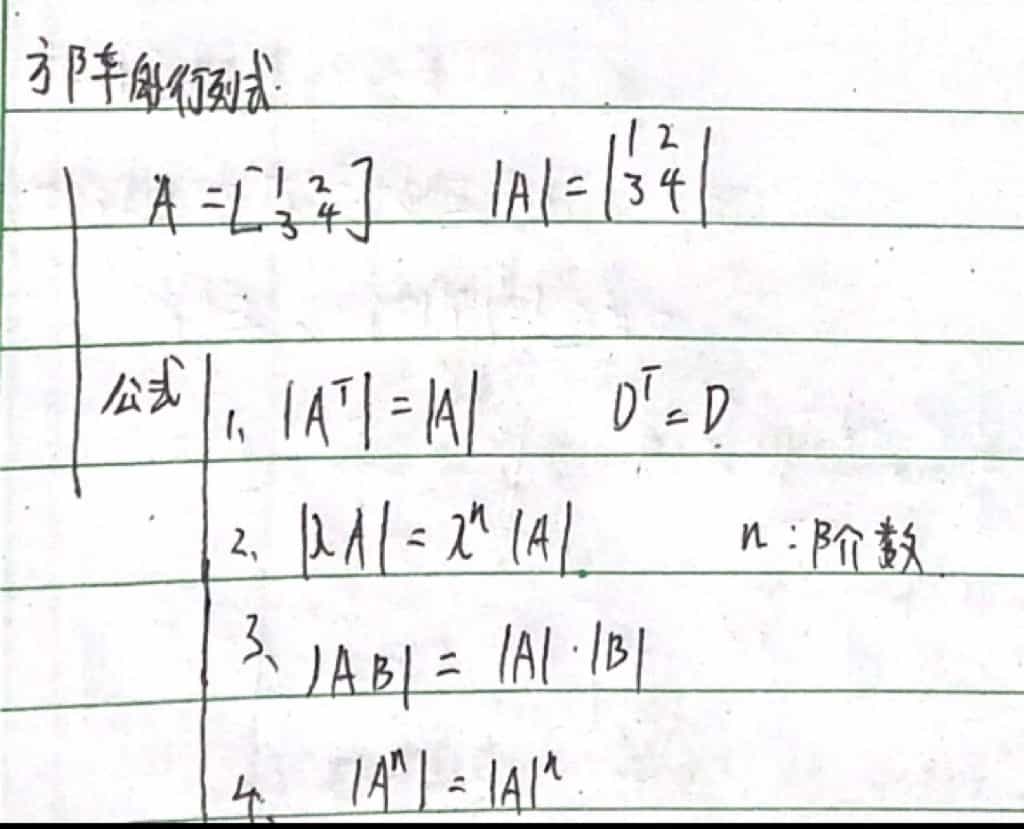 方阵的行列式
A = [1 2 3 4] |A| = |1 2 3 4|
公式 1、|Aᵀ| = |A| Dᵀ = D
2、|λA| = λⁿ|A| n:阶数
3、|AB| = |A|·|B|
4、|Aⁿ| = |A|ⁿ